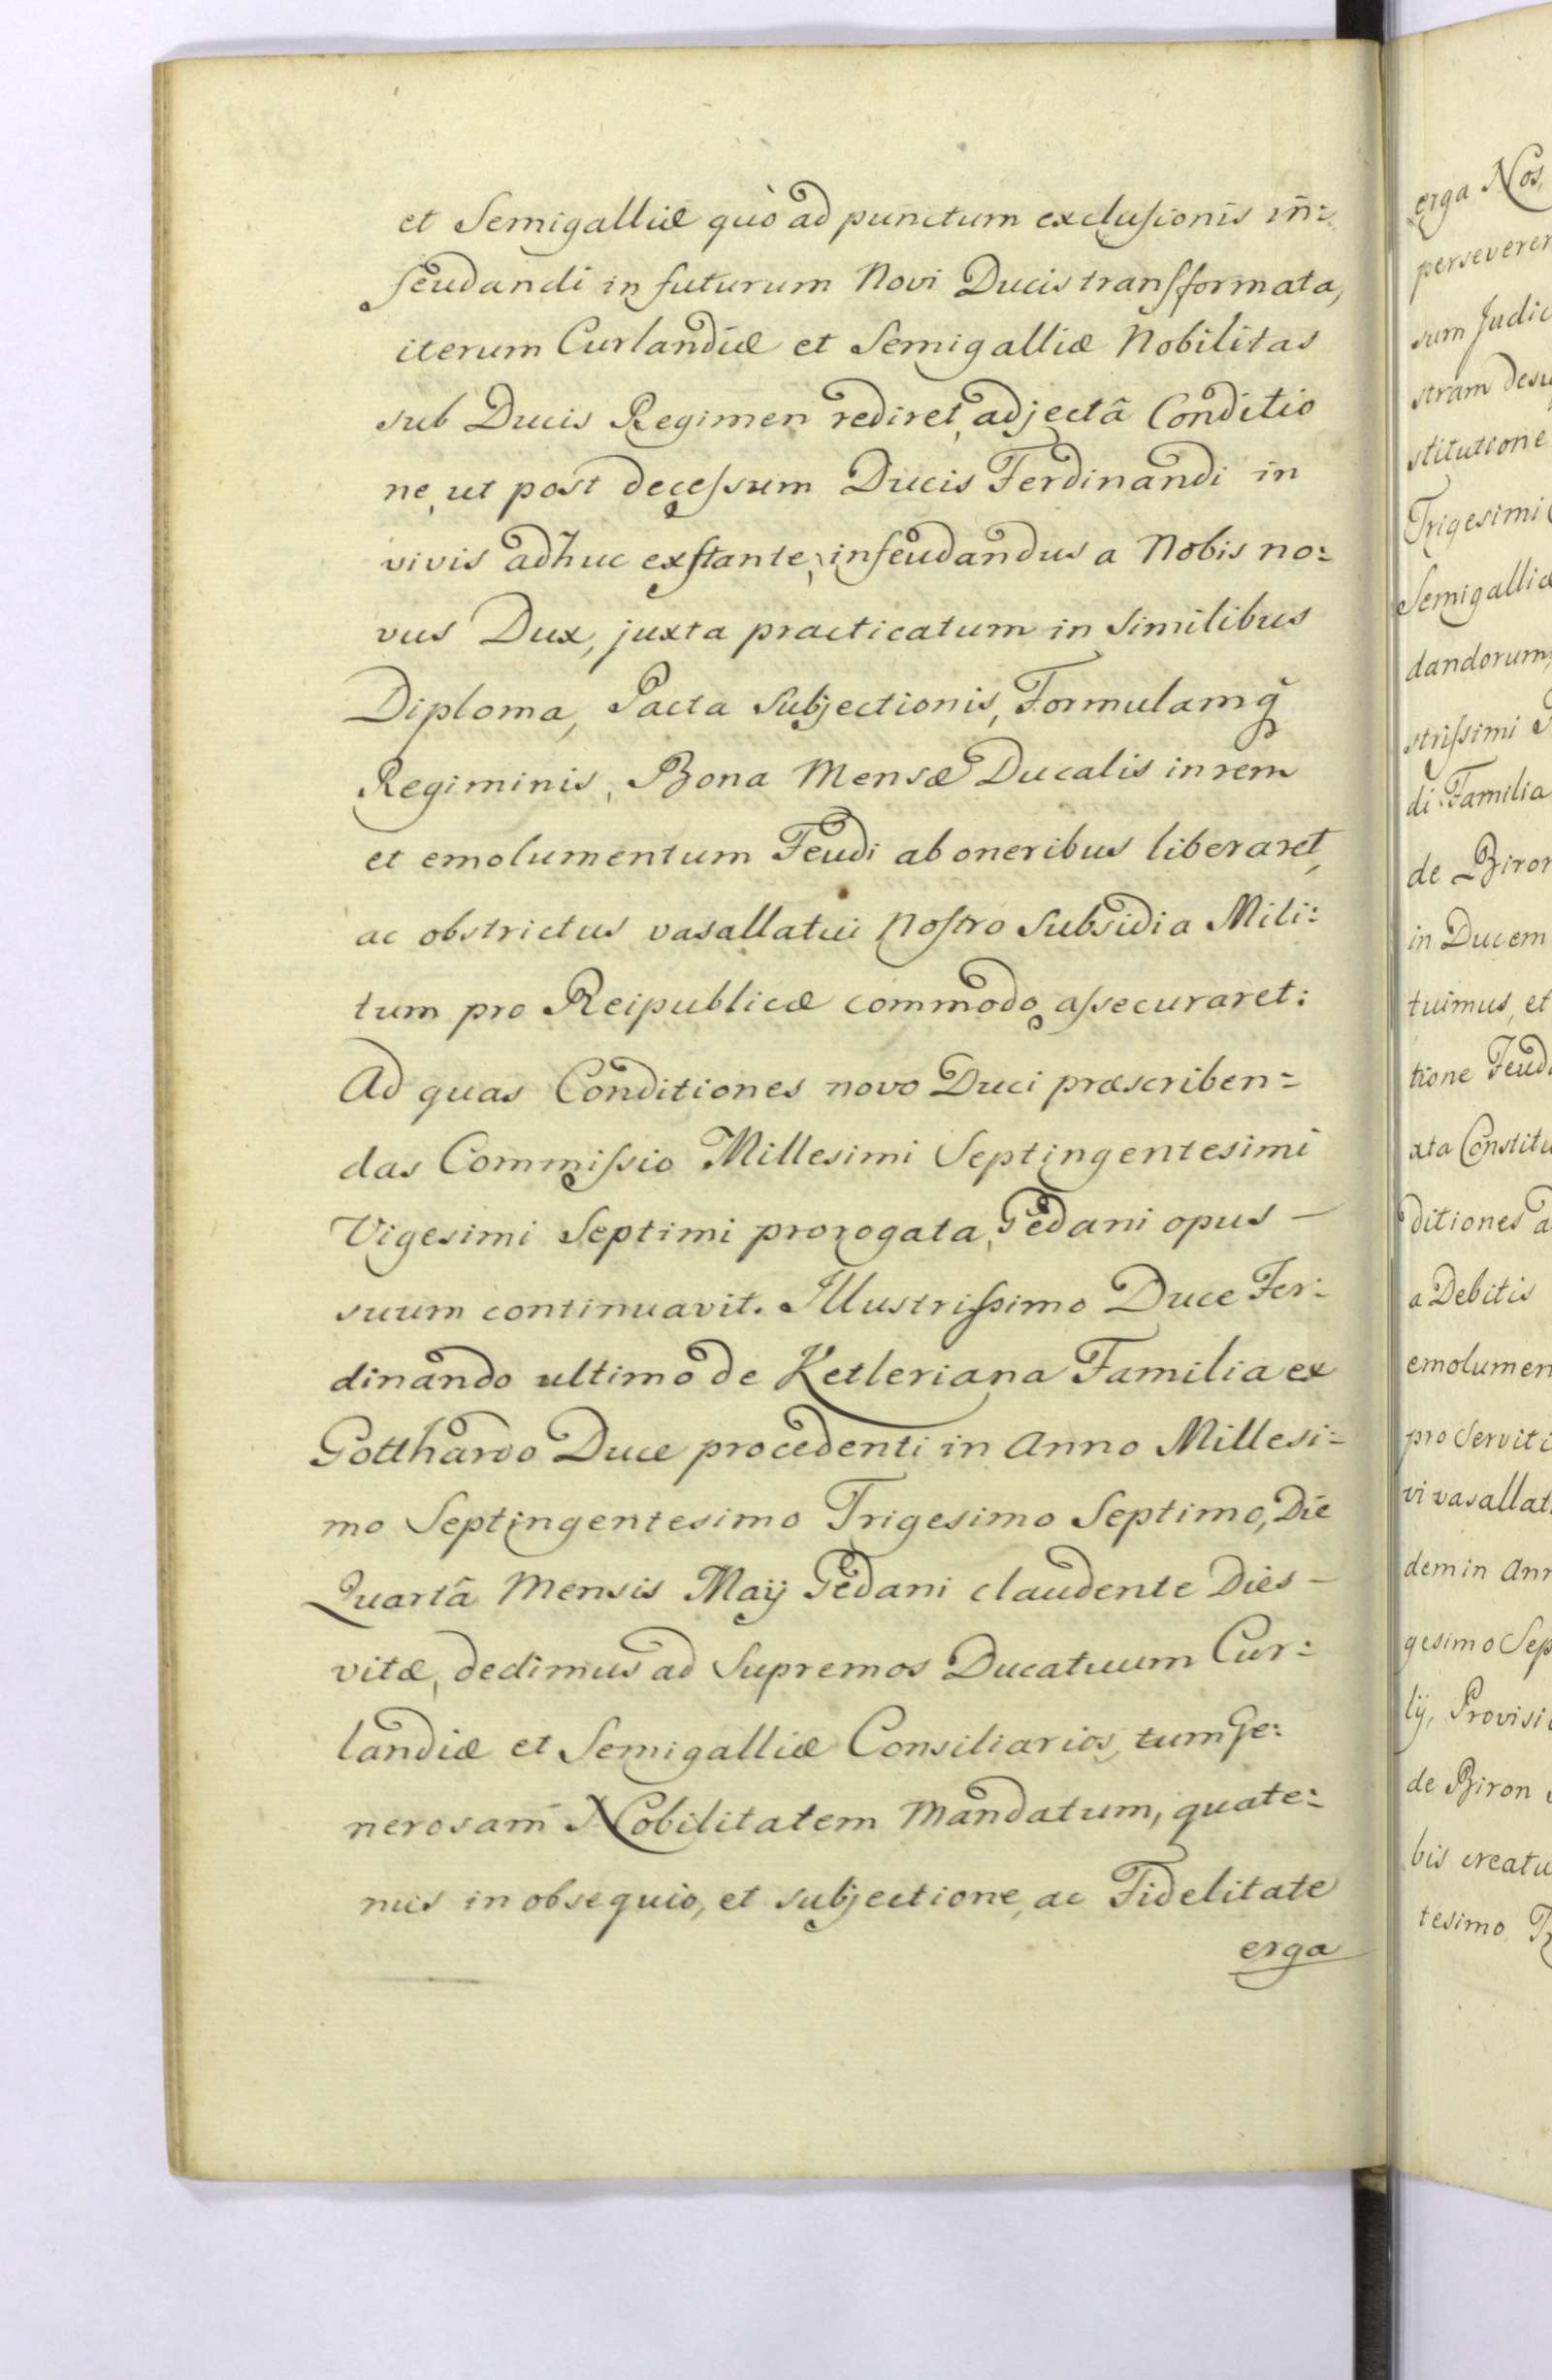 et Semigalliæ quò ad punctum exclusionis in=
feudandi in futurum Novi Ducis transformata,
iterum Curlandiæ et Semigalliæ Nobilitas
sub Ducis Regimen rediret, adjectâ Conditio
ne, ut post decessum Ducis Ferdinandi in
vivis adhuc exstante, infeudandus a Nobis no=
vus Dux, juxta practicatum in similibus
Diploma, Pacta Subjectionis, Formulamq̃
Regiminis, Bona Mensæ Ducalis in rem
et emolumentum Feudi ab oneribus liberaret,
ac obstrictus vasallatui Nostro Subsidia Mili=
tum pro Reipublicæ commodo assecuraret:
Ad quas Conditiones novo Duci præscriben=
das Commissio Millesimi Septingentesimi
Vigesimi Septimi prorogata, Gedani opus –
suum continuavit. Illustrissimo Duce Fer=
dinando ultimo de Ketleriana Familia ex
Gotthardo Duce procedenti in Anno Millesi=
mo Septingentesimo Trigesimo Septimo, Die
Quartâ Mensis Maÿ Gedani claudente Dies –
vitæ, dedimus ad Supremos Ducatuum Cur=
landiæ et Semigalliæ Consiliarios, tum Ge=
nerosam Nobilitatem Mandatum, quate=
nus in obsequio, et subjectione, ac Fidelitate
erga
erga Nos,
sum Judic
stitutione
Trigesimi
Semigalliæ
dandorum,
strissimi
di Familia
de Biron
in Ducem
tuimus, et
tione Feud
xta Constitu
ditiones a
a Debitis
emolumen
pro Serviti
vi vasallat
dem in Ann
gesimo Sep
lÿ, Provisi
de Biron
bis creatu
tesimo